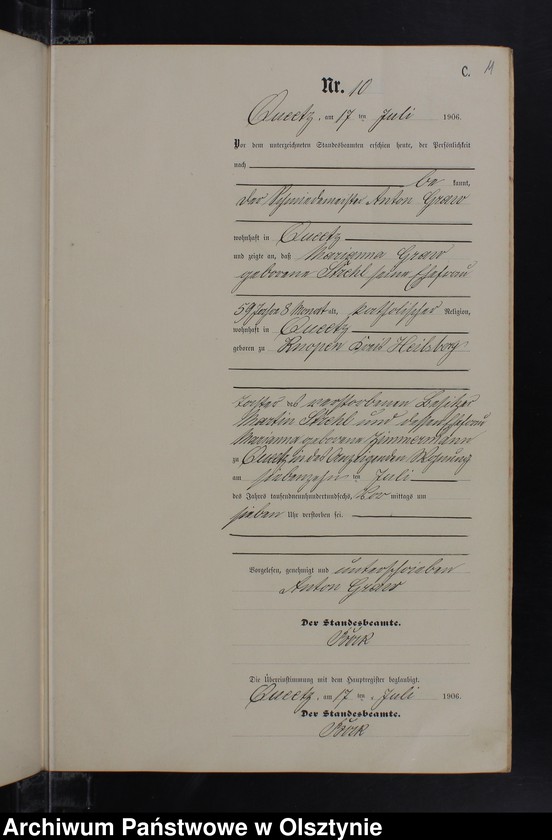 C. 14
Nr. 10
Queetz, am 17 ten Juli 1906.
Vor dem unterzeichneten Standesbeamten erschien heute, der Persönlichkeit
nach
be kannt,
der Schmiedemeister Anton Graw
wohnhaft in Queetz
und zeigte an, daß Marianna Graw
geborene Strehl seine Ehefrau
59 Jahre 8 Monat alt, katholischer Religion,
wohnhaft in Queetz
geboren zu Knopen Kreis Heilsberg
Tochter des verstorbenen Besitzer
Martin Strehl und dessen Ehefrau
Marianna geborene Zimmermann
zu Queetz in des Anzeigenden Wohnung
am siebenzehn ten Juli
des Jahrs tausendneunhundertundsechs, Vor mittags um
sieben Uhr verstorben sei.
Vorgelesen, genehmigt und unterschrieben
Anton Graw
Der Standesbeamte.
Die Übereinstimmung mit dem Hauptregister beglaubigt.
Queetz, am 17 ten Juli 1906.
Der Standesbeamte.
Archiwum Państwowe w Olsztynie